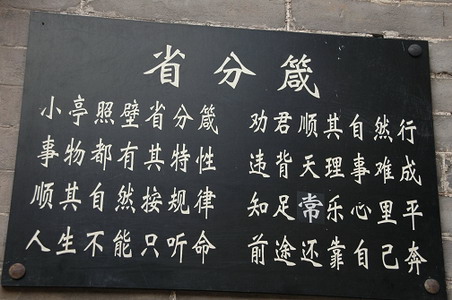 省分箴
小亭照壁省分箴 劝君顺其自然行
事物都有其特性 违背天理事难成
顺其自然按规律 知足常乐心里平
人生不能只听命 前途还靠自己奔